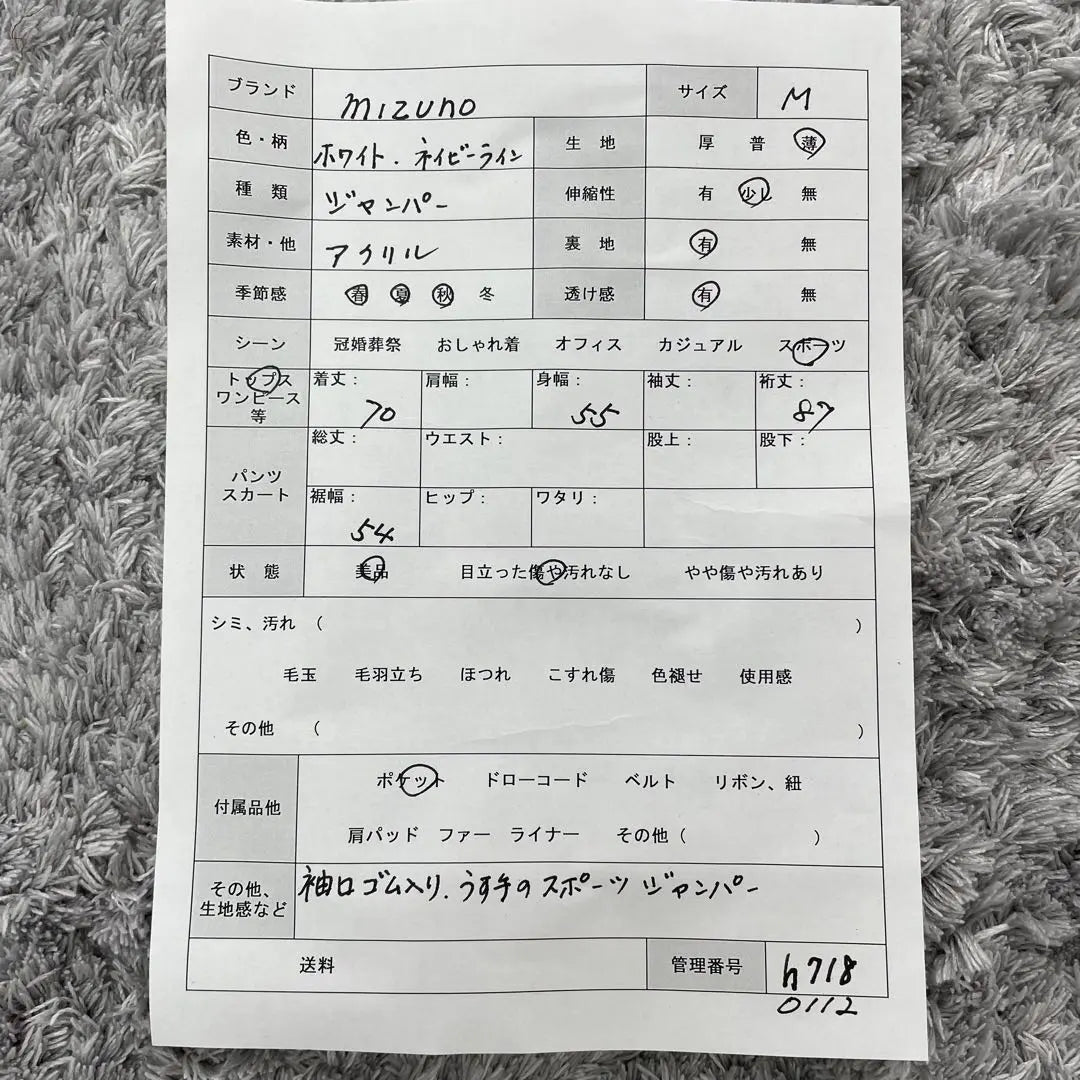 ブランド mizuno サイズ M
色・柄 ホワイト.ネイビーライン 生地 厚 普 薄
種類 ジャンパー 伸縮性 有 少し 無
素材・他 アクリル 裏地 有 無
季節感 春 夏 秋 冬 透け感 有 無
シーン 冠婚葬祭 おしゃれ着 オフィス カジュアル スポーツ
トップス
ワンピース
等
着丈: 70 肩幅: 身幅: 55 袖丈: 裄丈: 87
パンツ
スカート
総丈: ウエスト: 股上: 股下:
裾幅: 54 ヒップ: ワタリ:
状態 美品 目立った傷や汚れなし やや傷や汚れあり
シミ、汚れ ( )
毛玉 毛羽立ち ほつれ こすれ傷 色褪せ 使用感
その他 ( )
付属品他
ポケット ドローコード ベルト リボン、紐
肩パッド ファー ライナー その他 ( )
その他、
生地感など
袖口ゴム入り.うす手のスポーツジャンパー
送料 管理番号 h718
0112